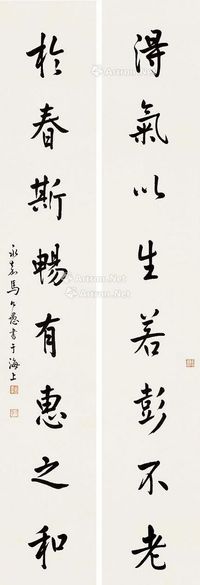 得氣以生若彭不老
於春斯暢有惠之和
永嘉馬公愚書于海上
Artron.Net
Artron.Net
Artron.Net